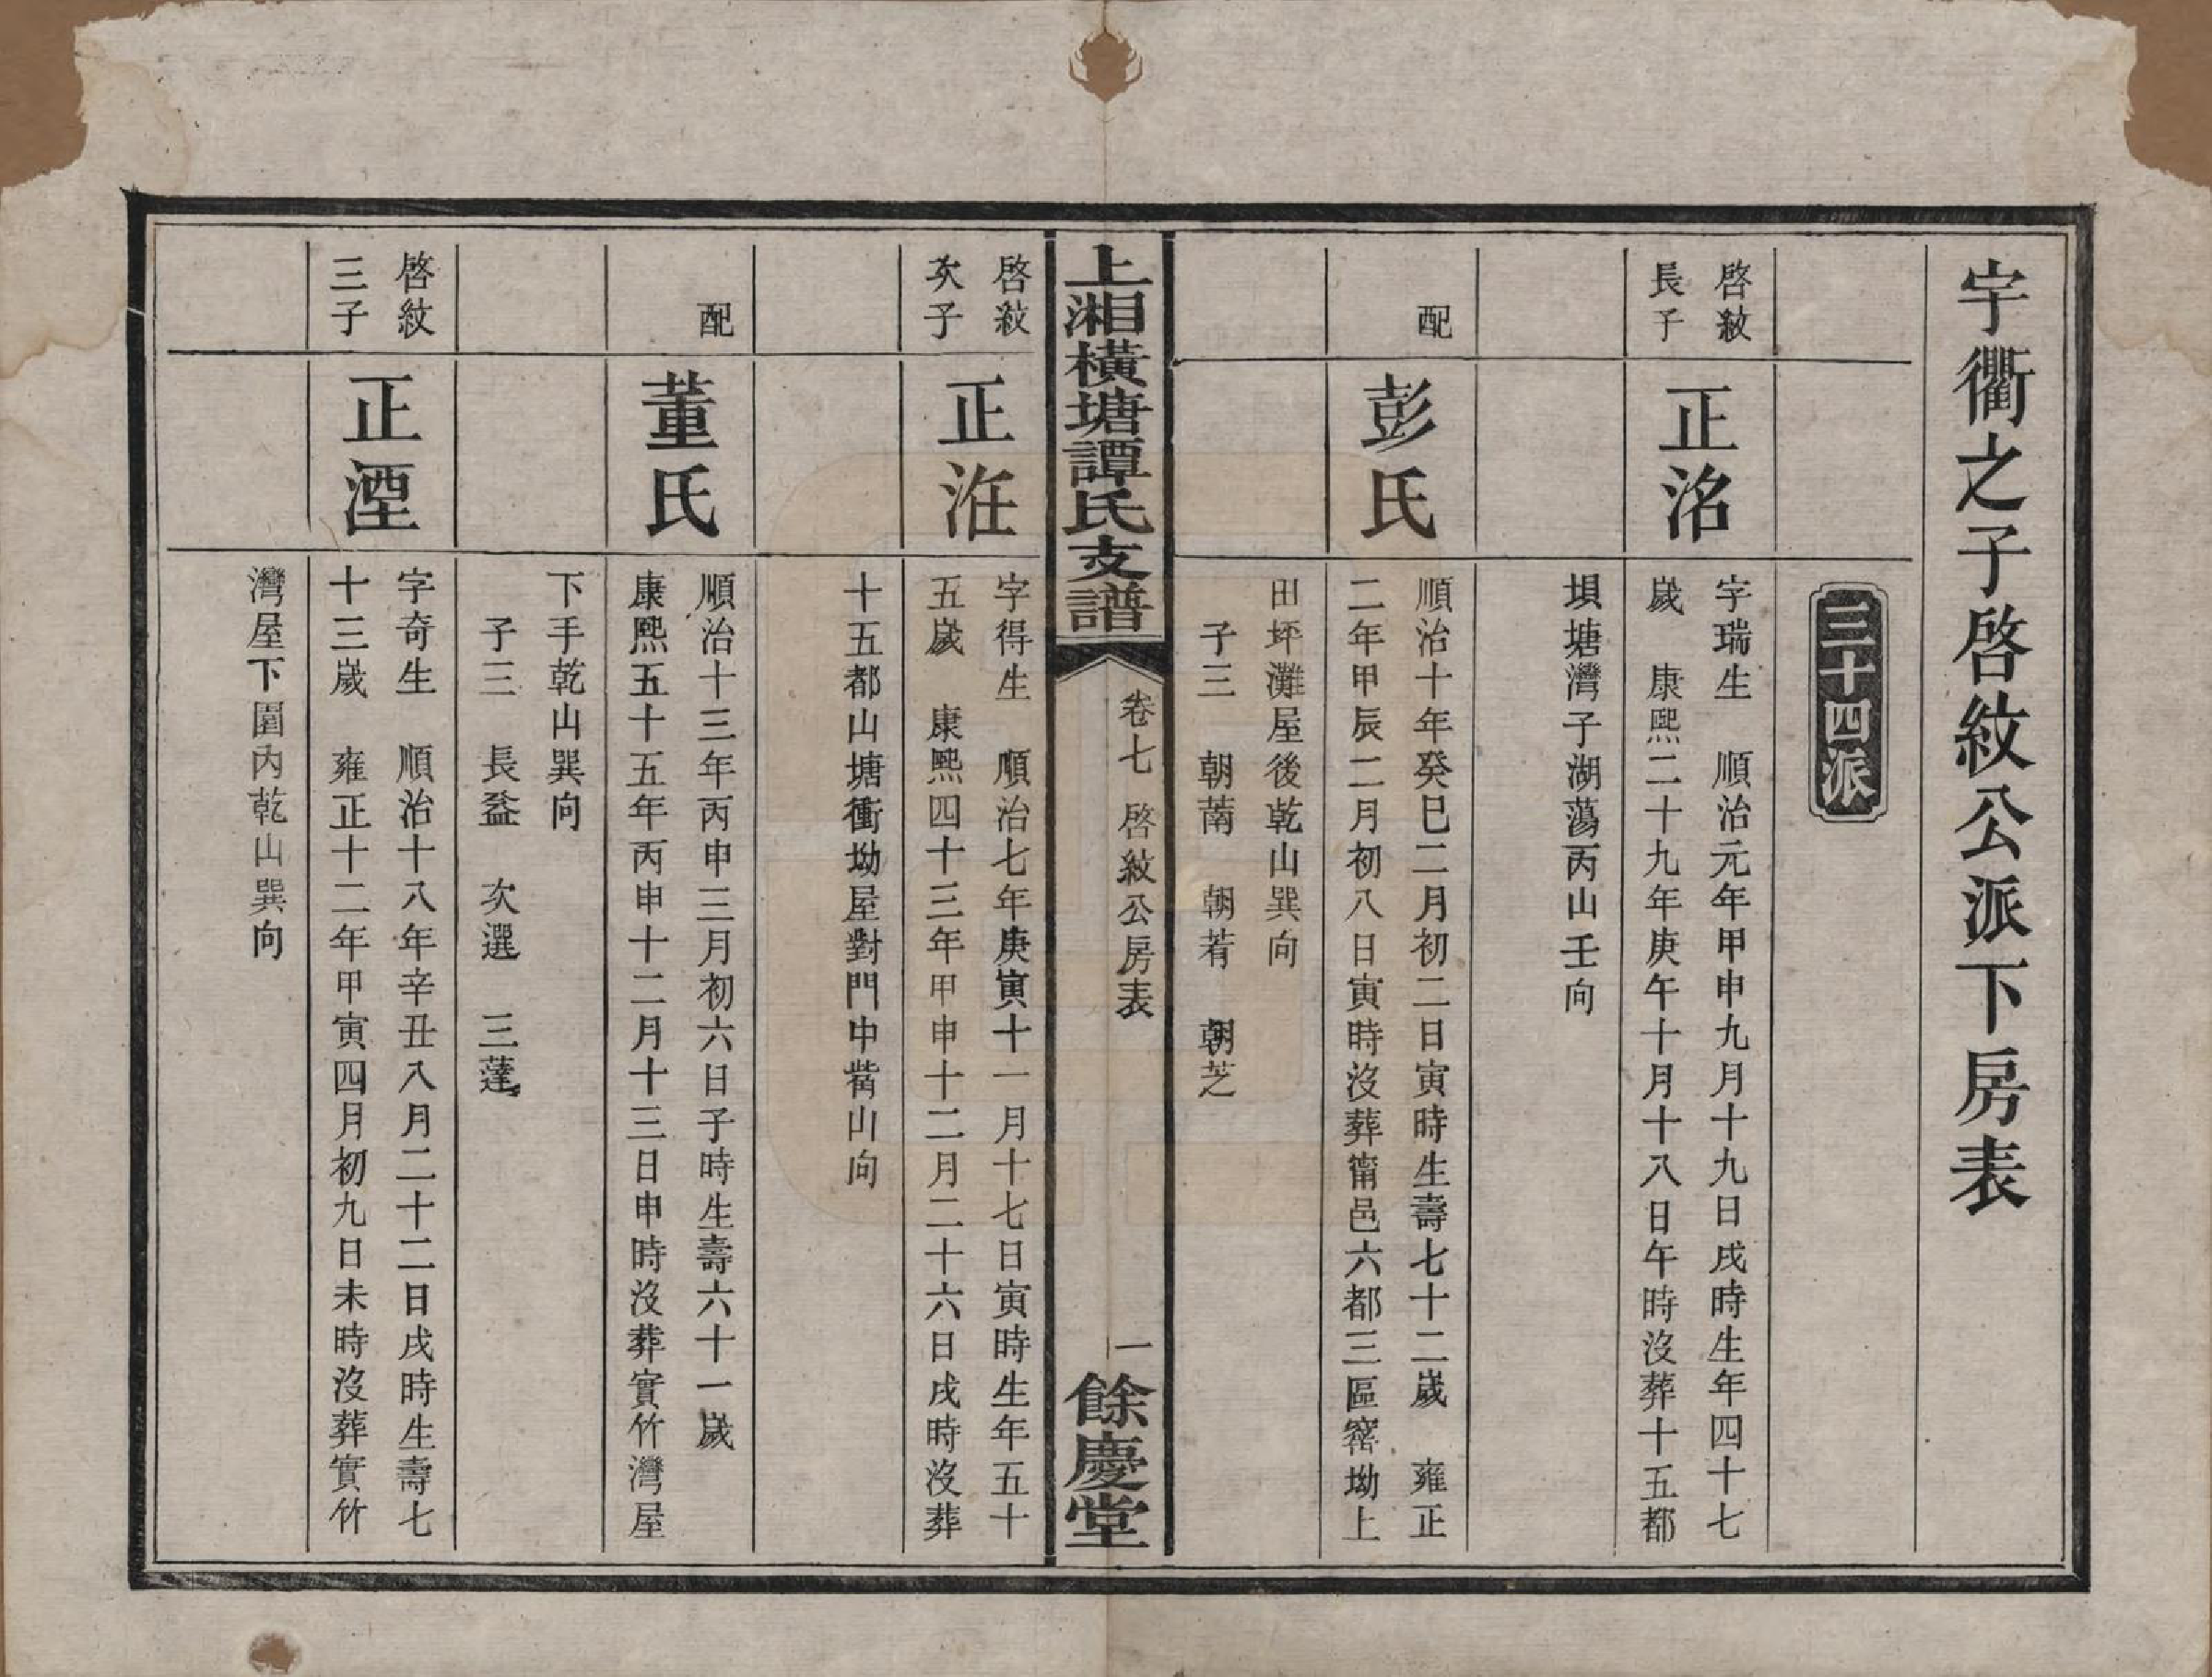 宇衢之子啓紋公派下房表
三十四派
啓紋
長子
正洺
字瑞生　順治元年甲申九月十九日戌時生年四十七
歲　康熙二十九年庚午十月十八日午時沒葬十五都
埧塘灣子湖蕩丙山壬向
配
彭氏
順治十年癸巳二月初二日寅時生壽七十二歲　雍正
二年甲辰二月初八日寅時沒葬甯邑六都三區窰坳上
田坪灘屋後乾山巽向
子三　朝萳　朝若　朝芝
上湘橫塘譚氏支譜
卷七　啓紋公房表
一
餘慶堂
啓紋
次子
正泩
字得生　順治七年庚寅十一月十七日寅時生年五十
五歲　康熙四十三年甲申十二月二十六日戌時沒葬
十五都山塘衝坳屋對門中嘴山向
配
董氏
順治十三年丙申三月初六日子時生壽六十一歲
康熙五十五年丙申十二月十三日申時沒葬實竹灣屋
下手乾山巽向
子三　長益　次選　三蓬
啓紋
三子
正湮
字奇生　順治十八年辛丑八月二十二日戌時生壽七
十三歲　雍正十二年甲寅四月初九日未時沒葬實竹
灣屋下園內乾山巽向